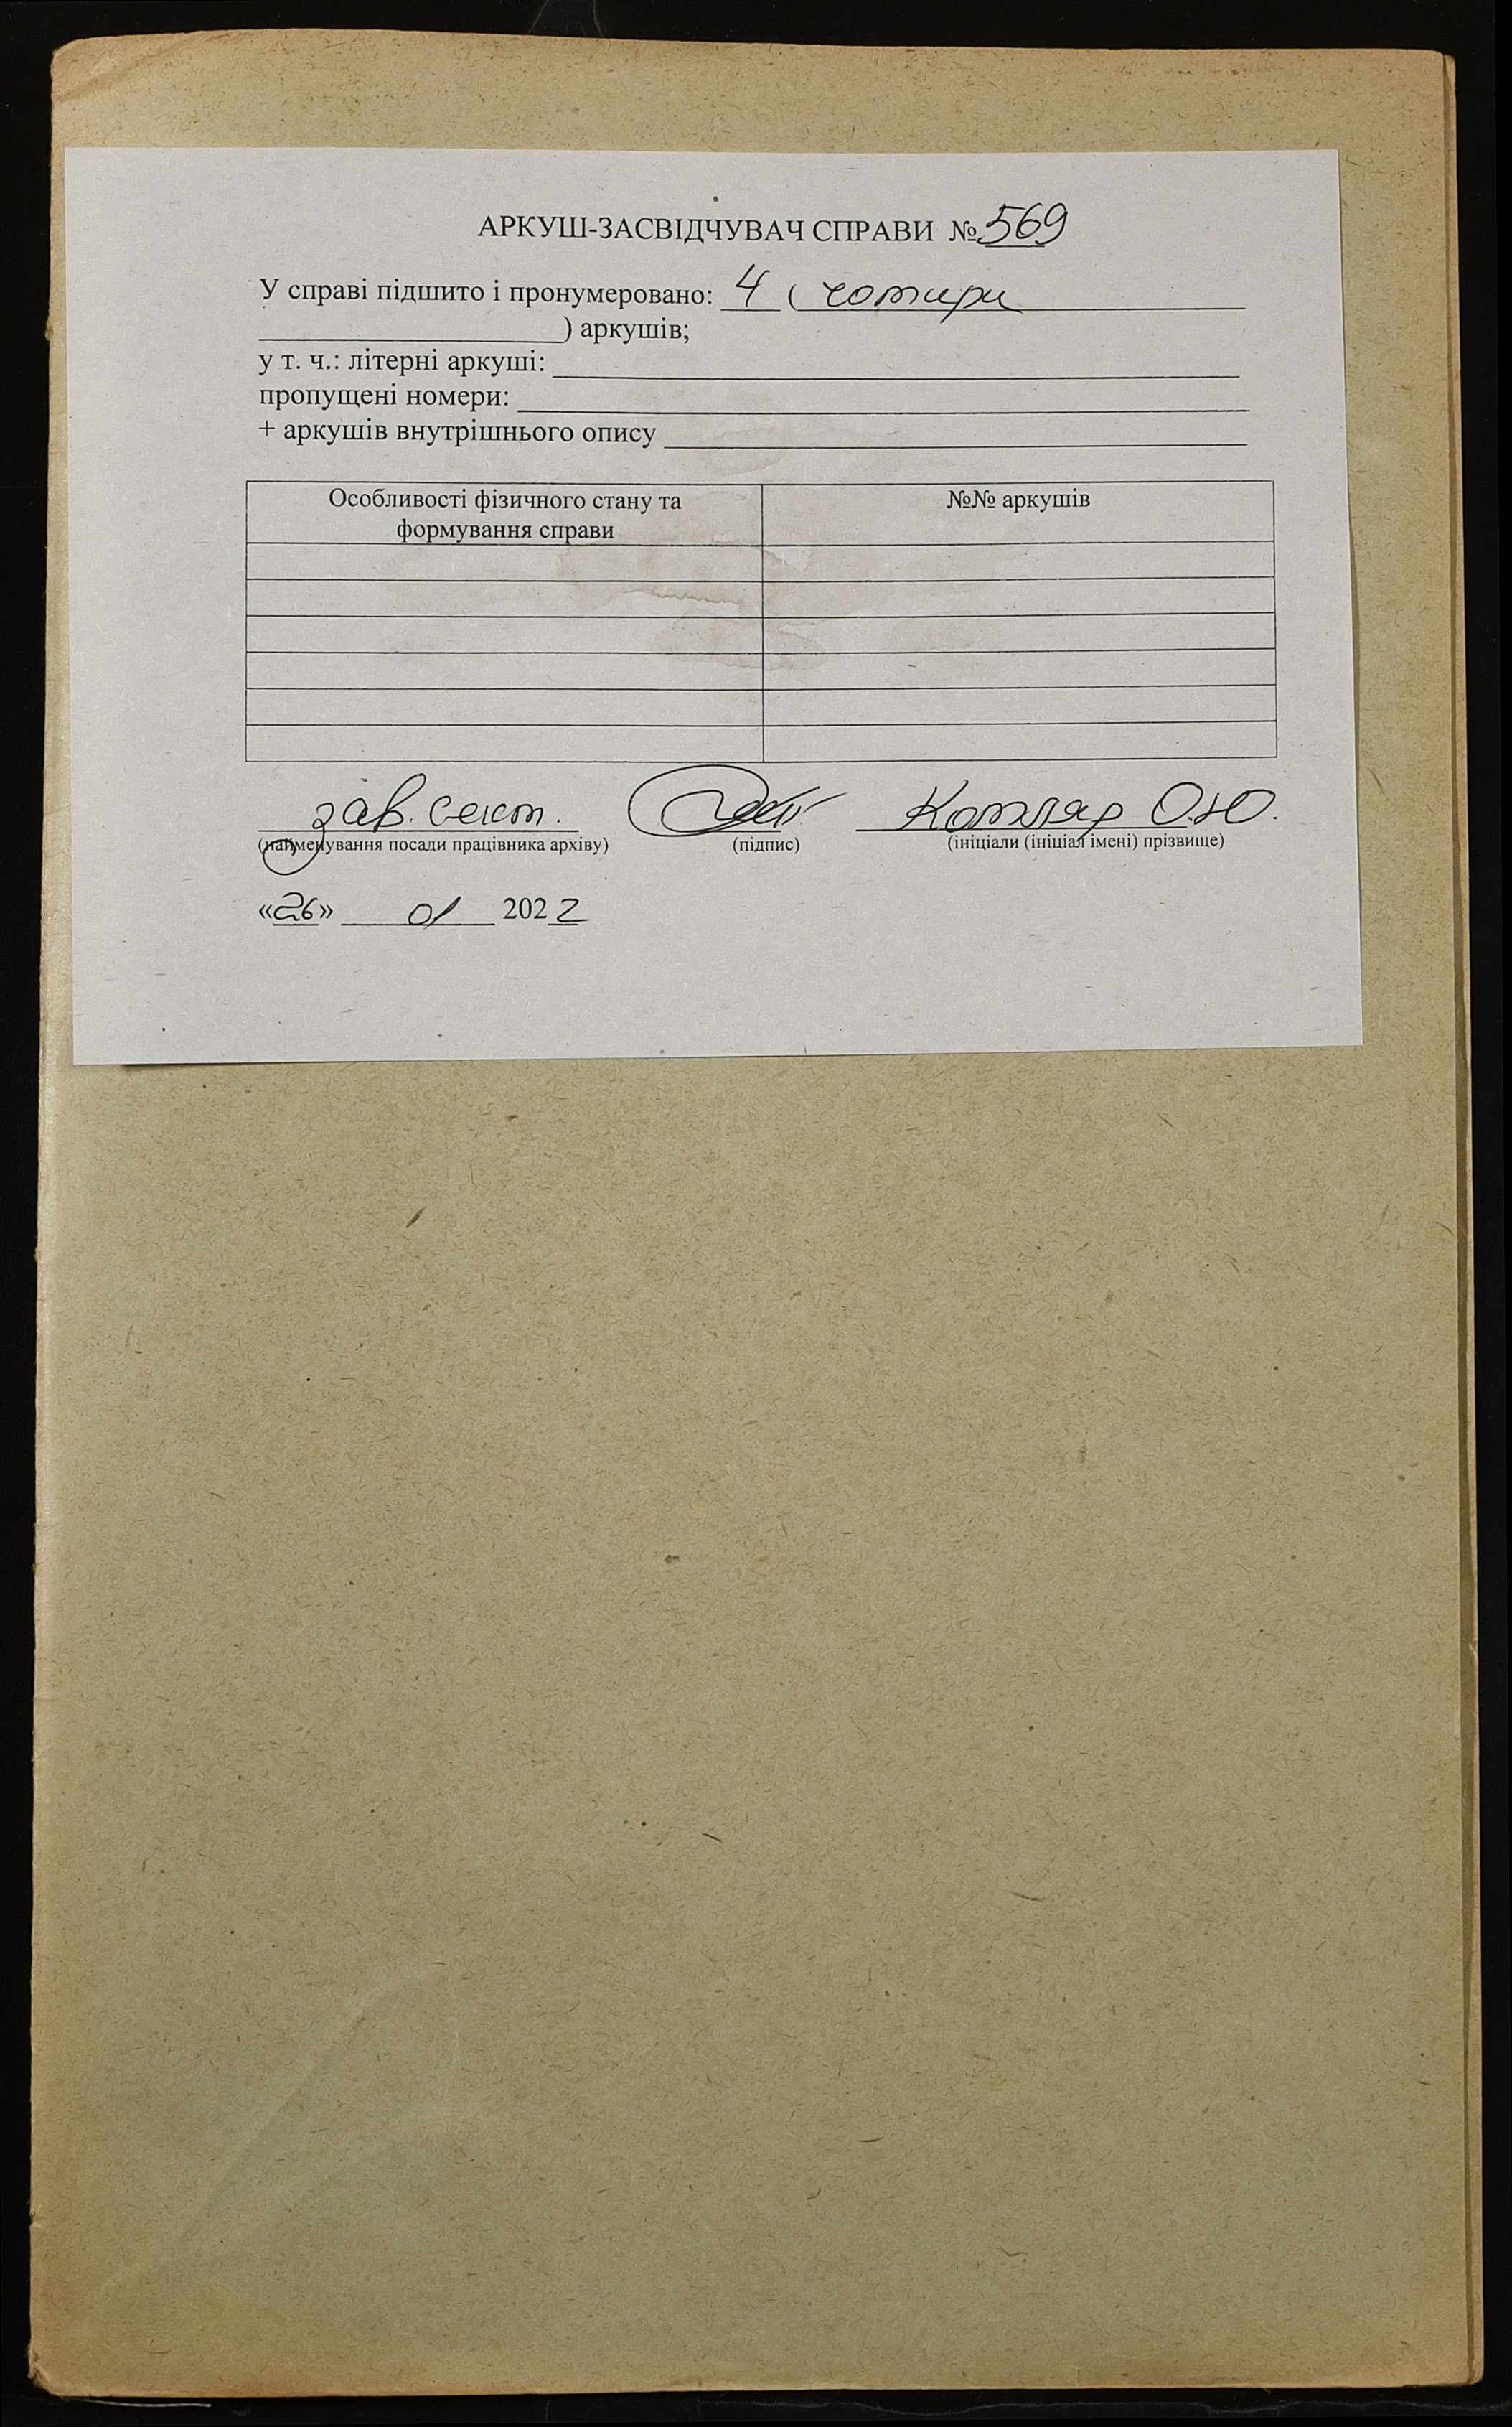 АРКУШ-ЗАСВІДЧУВАЧ СПРАВИ № 569
У справі підшито і пронумеровано: 4 ( чотири
) аркушів;
у т. ч.: літерні аркуші:
пропущені номери:
+ аркушів внутрішнього опису
Особливості фізичного стану та
формування справи
№№ аркушів
зав. сект. Котляр О.Ю.
(найменування посади працівника архіву) (підпис) (ініціали (ініціал імені) прізвище)
«26» 01 2022